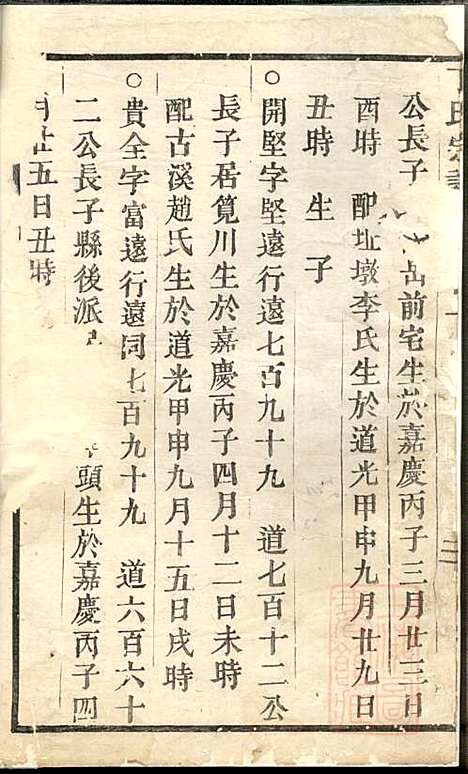 公長子 岳前宅生於嘉慶丙子三月廿三日
酉時 配址墩李氏生於道光甲申九月廿九日
丑時 生子
○開堅字堅遠行遠七百九十九 道七百十二公
長子居筧川生於嘉慶丙子四月十二日未時
配古溪趙氏生於道光甲申九月十五日戌時
○貴全字富遠行遠同七百九十九 道六百六十
二公長子縣後派 頭生於嘉慶丙子四
月廿五日丑時